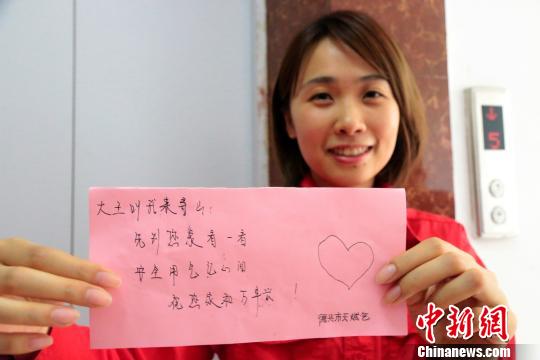 大王叫我来寻山:
先到您家看一看
安全用气记心间
祝您家和万事兴!
德兴市天燃气
5
中新网
Chinanews.com